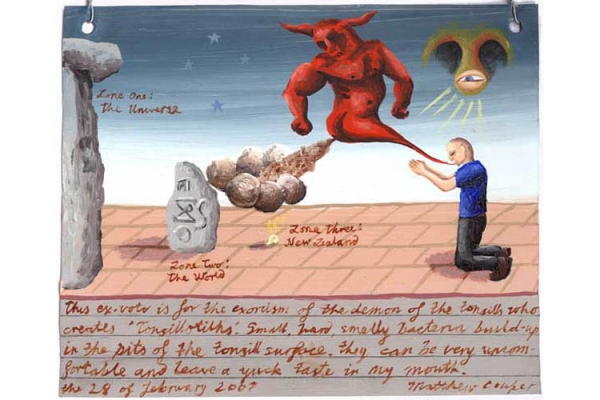 Zone One:
the Universe
Zone Three:
New Zealand
Zone two:
the World
this ex-voto is for the exorcism of the demon of the tonsills who
creates "Tonsillotiths". Small, hard, smelly bacteria build-up
in the pits of the tonsill surface. they can be very uncom-
fortable and leave a yuck taste in my mouth.
the 28 of february 2007
Matthew Couper